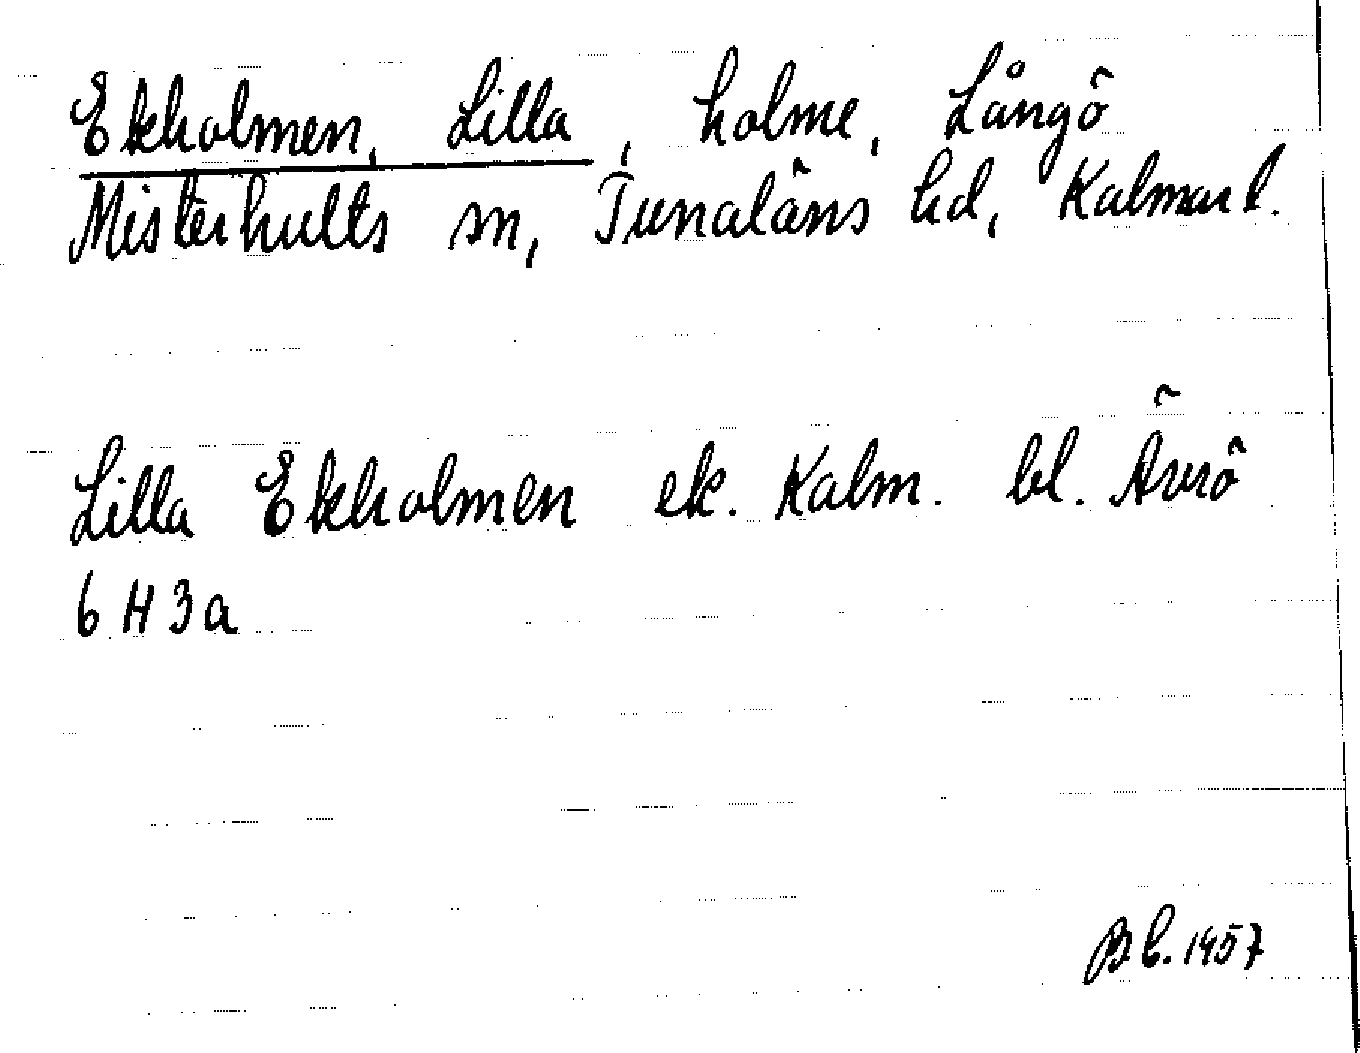 Ekholmen, Lilla, holme, Långö
Misterhults sn, Tunaläns hd, Kalmar l.
Lilla Ekholmen ek. Kalm. bl. Ävrö
6 H 3a
Bb. 1957